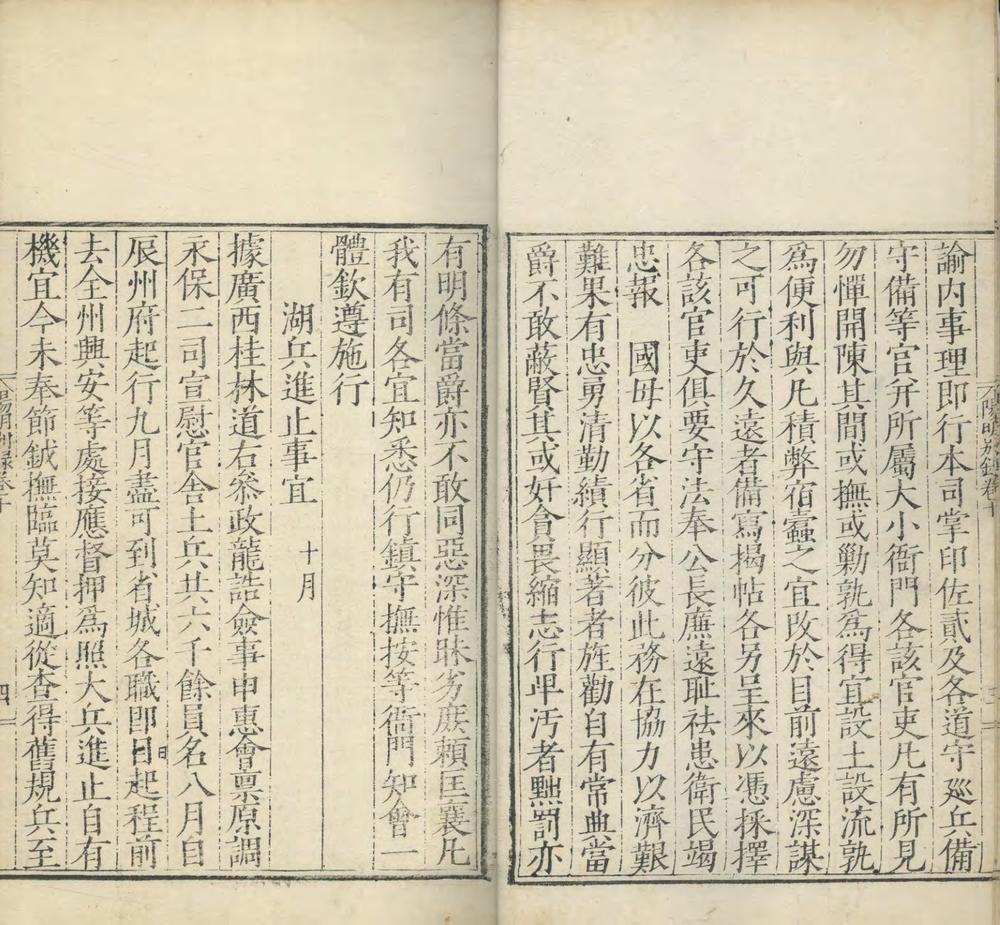 諭內事理即行本司掌印佐貳及各道守廵兵備
守備等官并所屬大小衙門各該官吏凡有所見
勿憚開陳其間或撫或勦孰爲得宜設土設流孰
爲便利與凡積弊宿蠹之宜攺於目前遠慮深謀
之可行於久遠者備寫揭帖各另呈來以憑採擇
各該官吏俱要守法奉公長廉遠耻祛患衛民竭
忠報　國毋以各省而分彼此務在協力以濟艱
難果有忠勇清勤績行顯著者旌勸自有常典當
爵不敢蔽賢其或奸貪畏縮志行卑汚者黜罰亦
有明條當爵亦不敢同惡深惟昧劣庶賴匡襄凡
我有司各宜知悉仍行鎮守撫按等衙門知會一
體欽遵施行
湖兵進止事宜　十月
據廣西桂林道右叅政龍誥僉事申惠會禀原調
永保二司宣慰官舍土兵共六千餘員名八月自
辰州府起行九月盡可到省城各職即日起程前
去全州興安等處接應督押爲照大兵進止自有
機宜今未奉節鉞撫臨莫知適從查得舊規兵至